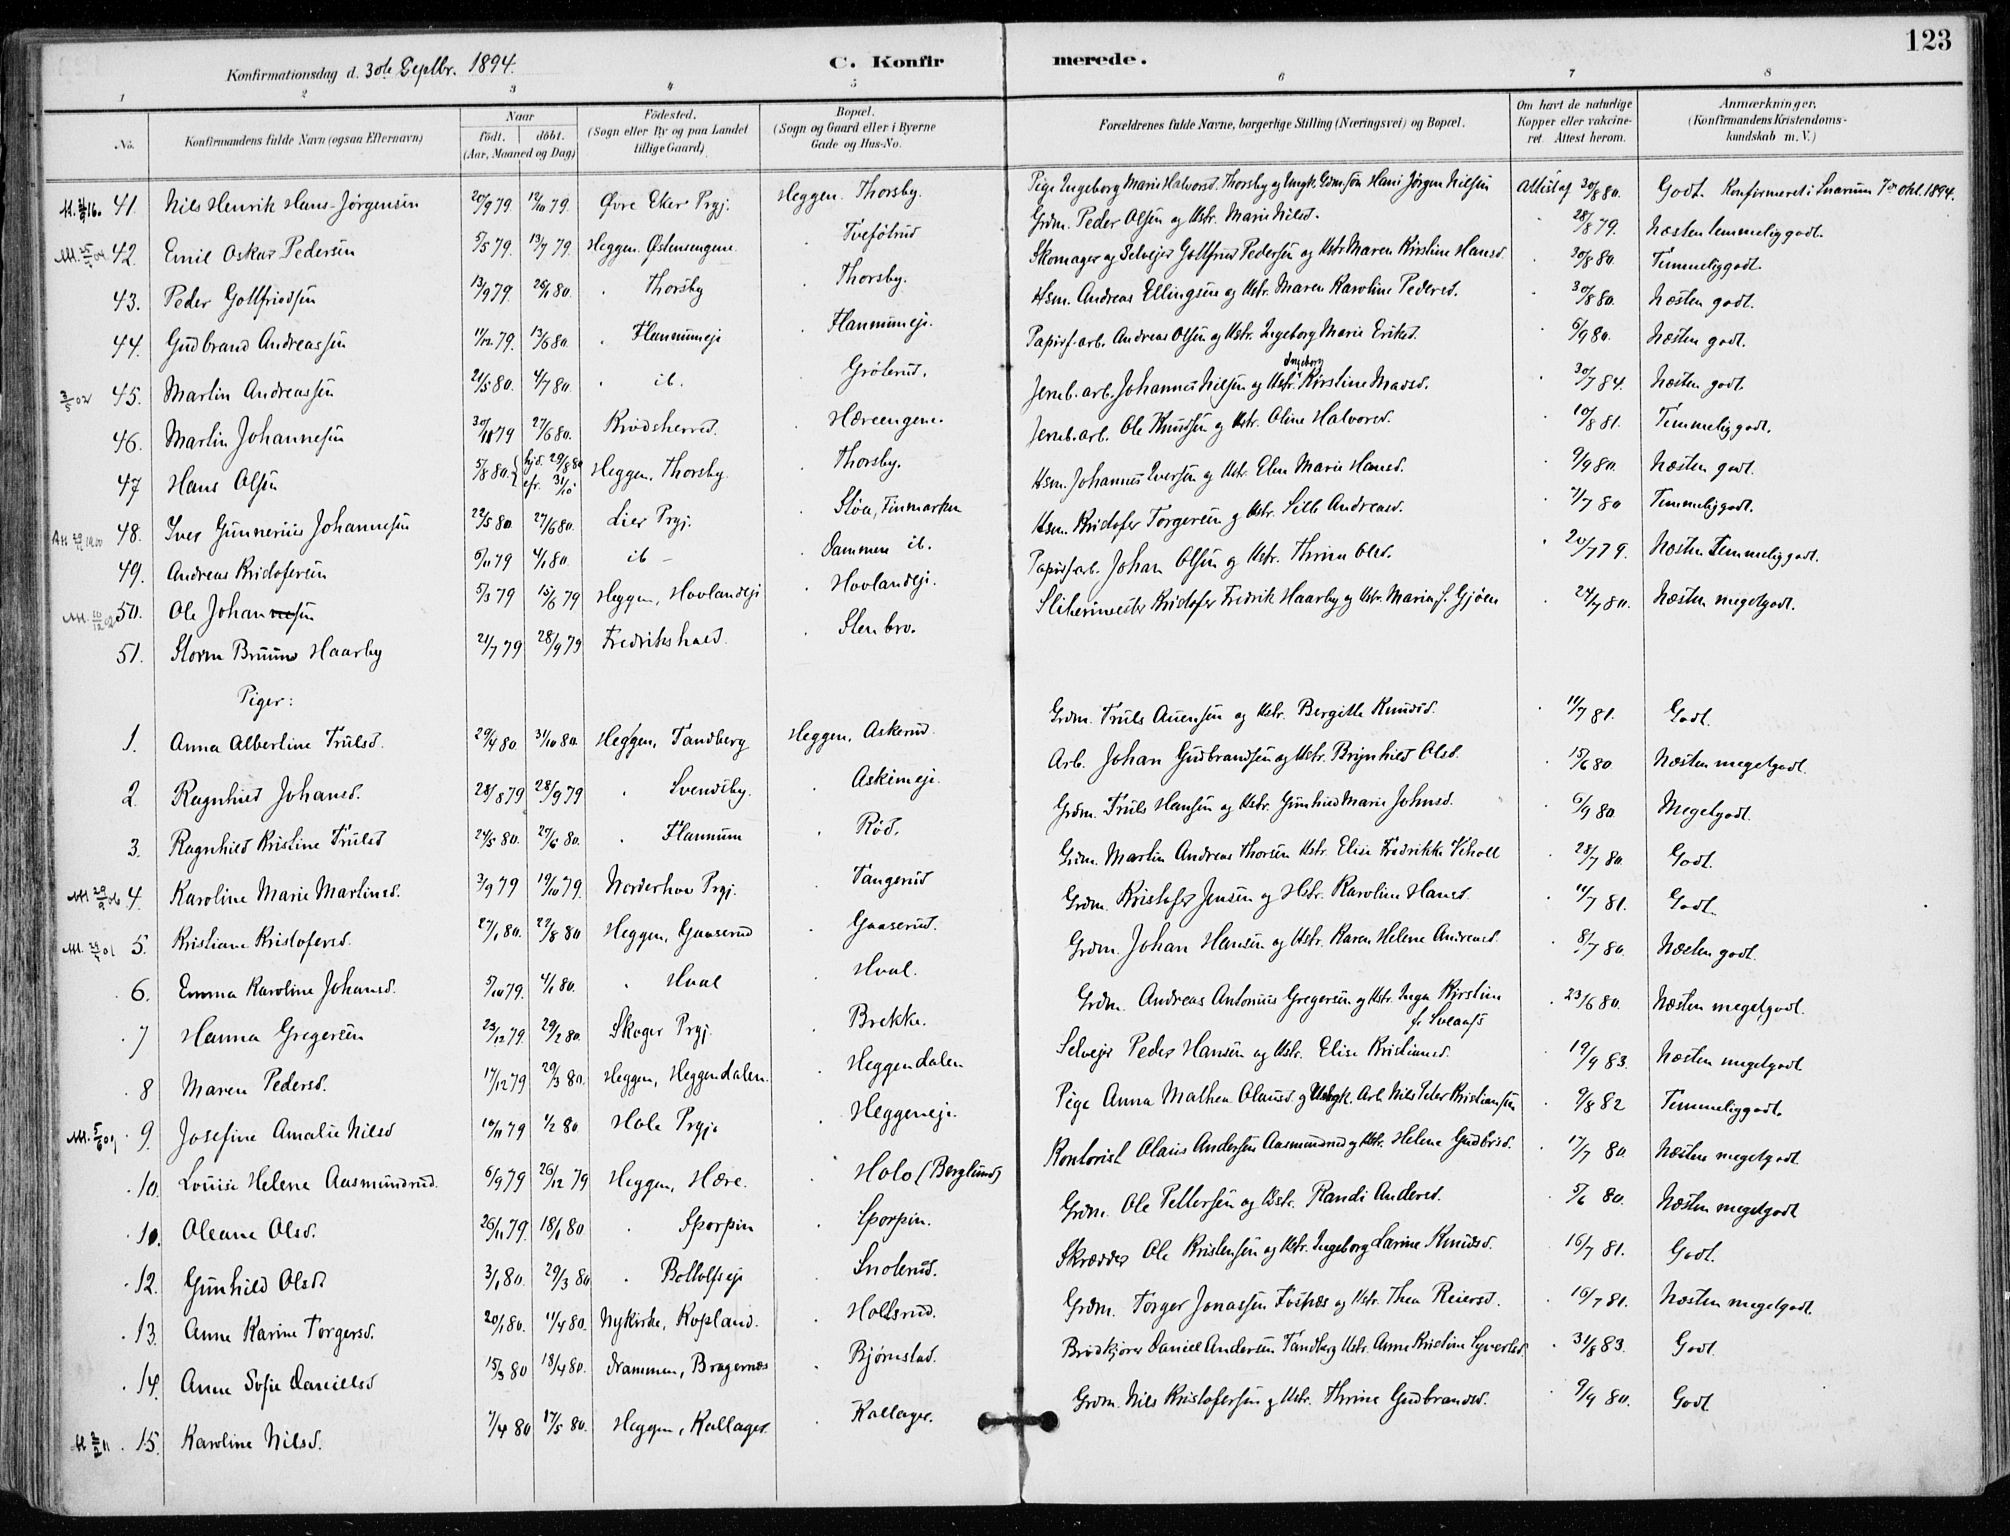 123
Konfirmationsdag d. 30te Septbr. 1894.
C. Konfirmerede.
1 2 3 4 5 6 7 8
No. Konfirmandens fulde Navn (ogsaa Efternavn) Naar født. døbt. (Aar, Maaned og Dag) Fødested. (Sogn eller By og paa Landet tillige Gaard) Bopæl. (Sogn og Gaard eller i Byerne Gade og Hus-No. Forældrenes fulde Navne, borgerlige Stilling (Næringsvei) og Bopæl. Om havt de naturlige Kopper eller vakcineret. Attest herom. Anmærkninger. (Konfirmandens Kristendomskundskab m. V.)
41. Nils Henrik Hans-Jörgensen 20/9 79 12/10 79. Øvre Eker Prgj. Heggen. Thorsby. Pige Ingeborg Marie Halvorsd. Thorsby og Ungk. Hans Jørgen Nilsen Attest af 30/8 80. Godt. Konfirmeret i Snarum 7de okt. 1894.
42. Emil Oskar Pedersen 5/5 79. 13/7 79. Heggen. Østensengene Tveføtrud Grdm. Peder Olsen og Hstr. Marie Nilsd. 28/8 79. Næsten temmelig godt.
43. Peder Gottfriedsen 13/9 79. 26/1 80. Thorsby Thorsby. Skomager og Selvejer Gottfried Pedersen og Hstr Maren Kirstine Hansd. 30/8 80. Temmelig godt.
44. Gudbrand Andreassen 11/12 79. 13/6 80. Flannumeje Flannumeje. Hsm. Andreas Ellingsen og Hstr. Maren Karoline Pedersd. 30/8 80. Næsten godt.
45. Martin Andreassen 21/5 80. 4/7 80. ib. Grøterud. Papirsf.arb. Andreas Olsen og Hstr. Ingeborg Marie Eriksd. 6/9 80. Næsten godt.
3/5 02
46. Martin Johannesen 30/11 79 27/6 80. Krødsherred. Hæreengene. Jernb.arb. Johannes Nilsen og Hstr. Ingeborg Kirstine Madsd. 30/7 84. Næsten godt.
47 Hans Olsen 5/8 80. hjd. 29/8 80 efr. 31/10 Heggen, Thorsby. Thorsby. Jernb.arb. Ole Knudsen og Hstr. Oline Halvorsd. 10/8 81. Temmelig godt.
48. Iver Gunnerius Johannesen 22/5 80. 27/6 80. Lier Prgj. Støa, Finmarken Hsm. Johannes Iversen og Hstr. Elen Marie Hansd. 9/9 80. Næsten godt.
49. Andreas Kristofersen 6/11 79 4/1 80. ib - Dammen ib. Hsm. Kristofer Torgersen og Hstr. Sille Andreasd. 2/7 80 Temmelig godt.
50. Ole Johannesen 5/3 79 15/6 79 Heggen, Hovlandeje Hovlandeje. Papirsf.arb. Johan Olsen og Hstr. Thrine Olsd. 20/7 79. Næsten Temmelig godt.
51. Storm Bruun Haarby 21/7 79 28/9 79 Fredrikshald. Stenbro. Sliberimester Kristofer Fredrik Haarby og Hstr. Marie f. Gjøen 24/7 80. Næsten meget godt.
Piger:
1. Anna Albertine Trulsd. 29/4 80. 31/10 80. Heggen, Tandberg Heggen, Askerud. Grdm. Truls Auensen og Hstr. Bergitte Knudsd. 11/7 81. Godt.
2. Ragnhild Johansd. 28/8 79 28/9 79 Svendsby. Askimeje. Arb. Johan Gudbrandsen og Hstr. Brynhild Olsd. 15/6 80 Næsten meget godt.
3. Ragnhild Kristine Trulsd 24/5 80. 27/6 80. Flannum Rød. Grdm. Truls Hansen og Hstr. Gunhild Marie Johnsd. 6/9 80. Meget godt.
4. Karoline Marie Martinsd. 3/9 79 19/10 79. Norderhov Prgj. Tangerud Grdm. Martin Andreas Thorsen Hstr. Elise Fredrikke Viholt 28/7 80. Godt.
5. Kristiane Kristofersd. 27/1 80. 22/8 80 Heggen, Gaaserud Gaaserud. Grdm. Kristofer Jensen og Hstr. Karoline Hansd. 11/7 81. Godt.
6. Emma Karoline Johansd. 5/10 79. 4/1 80. Hval Hval. Grdm. Johan Hansen og Hstr. Karen Helene Andreasd. 8/7 80. Næsten godt.
7 Hanna Gregersen 23/12 79. 29/2 80. Skoger Prgj. Brekke. Grdm. Andreas Antonius Gregersen og Hstr. Inga Kirstine f. Sveaas 23/6 80. Næsten meget godt.
8 Maren Pedersd. 17/12 79 29/3 80. Heggen, Heggendalen. Heggendalen Selvejer Peder Hansen og Hstr. Elise Kristiansd. 19/9 83. Næsten meget godt.
9. Josefine Amalie Nilsd 10/11 79 1/2 80 Hole Prgj. Heggeneje. Pige Anna Mathea Olausd. og Ungk. Arb. Nils Peter Kristiansen 9/8 82 Temmelig godt.
10. Louise Helene Aasmundrud. 6/9 79 26/12 79 Heggen, Hære. Holo (Berglund) Kontorist Olaus Andersen Aasmundrud og Hstr. Helene Gudbrsd. 17/7 80 Næsten meget godt.
10. Oleane Olsd. 26/11 79. 18/1 80. Sporpin Sporpin. Grdm. Ole Pettersen og Hstr. Randi Andersd. 5/6 80. Næsten meget godt
12. Gunhild Olsd. 3/1 80. 29/3 80 Bottolfseje Snoterud. Skrædder Ole Kristensen og Hstr. Ingeborg Larine Knudsd. 16/7 81. Godt.
13. Anne Karine Torgersd. 20/1 80. 11/4 80. Nykirke, Kopland. Holtsrud. Grdm. Torger Jonassen Fosnæs og Hstr. Thea Reiersd. 16/7 81. Næsten meget godt.
14. Anne Sofie Danielsd 15/3 80 18/4 80. Drammen, Bragernæs Bjørnstad. Brødkjører Daniel Andersen Tandberg Hstr. Anne Kristine Syvertsd. 31/8 83. Godt.
15. Karoline Nilsd. 7/4 80 17/5 80. Heggen, Kallager. Kallager. Grdm. Nils Kristofersen og Hstr. Thrine Gudbrandsd. 9/9 80. Godt